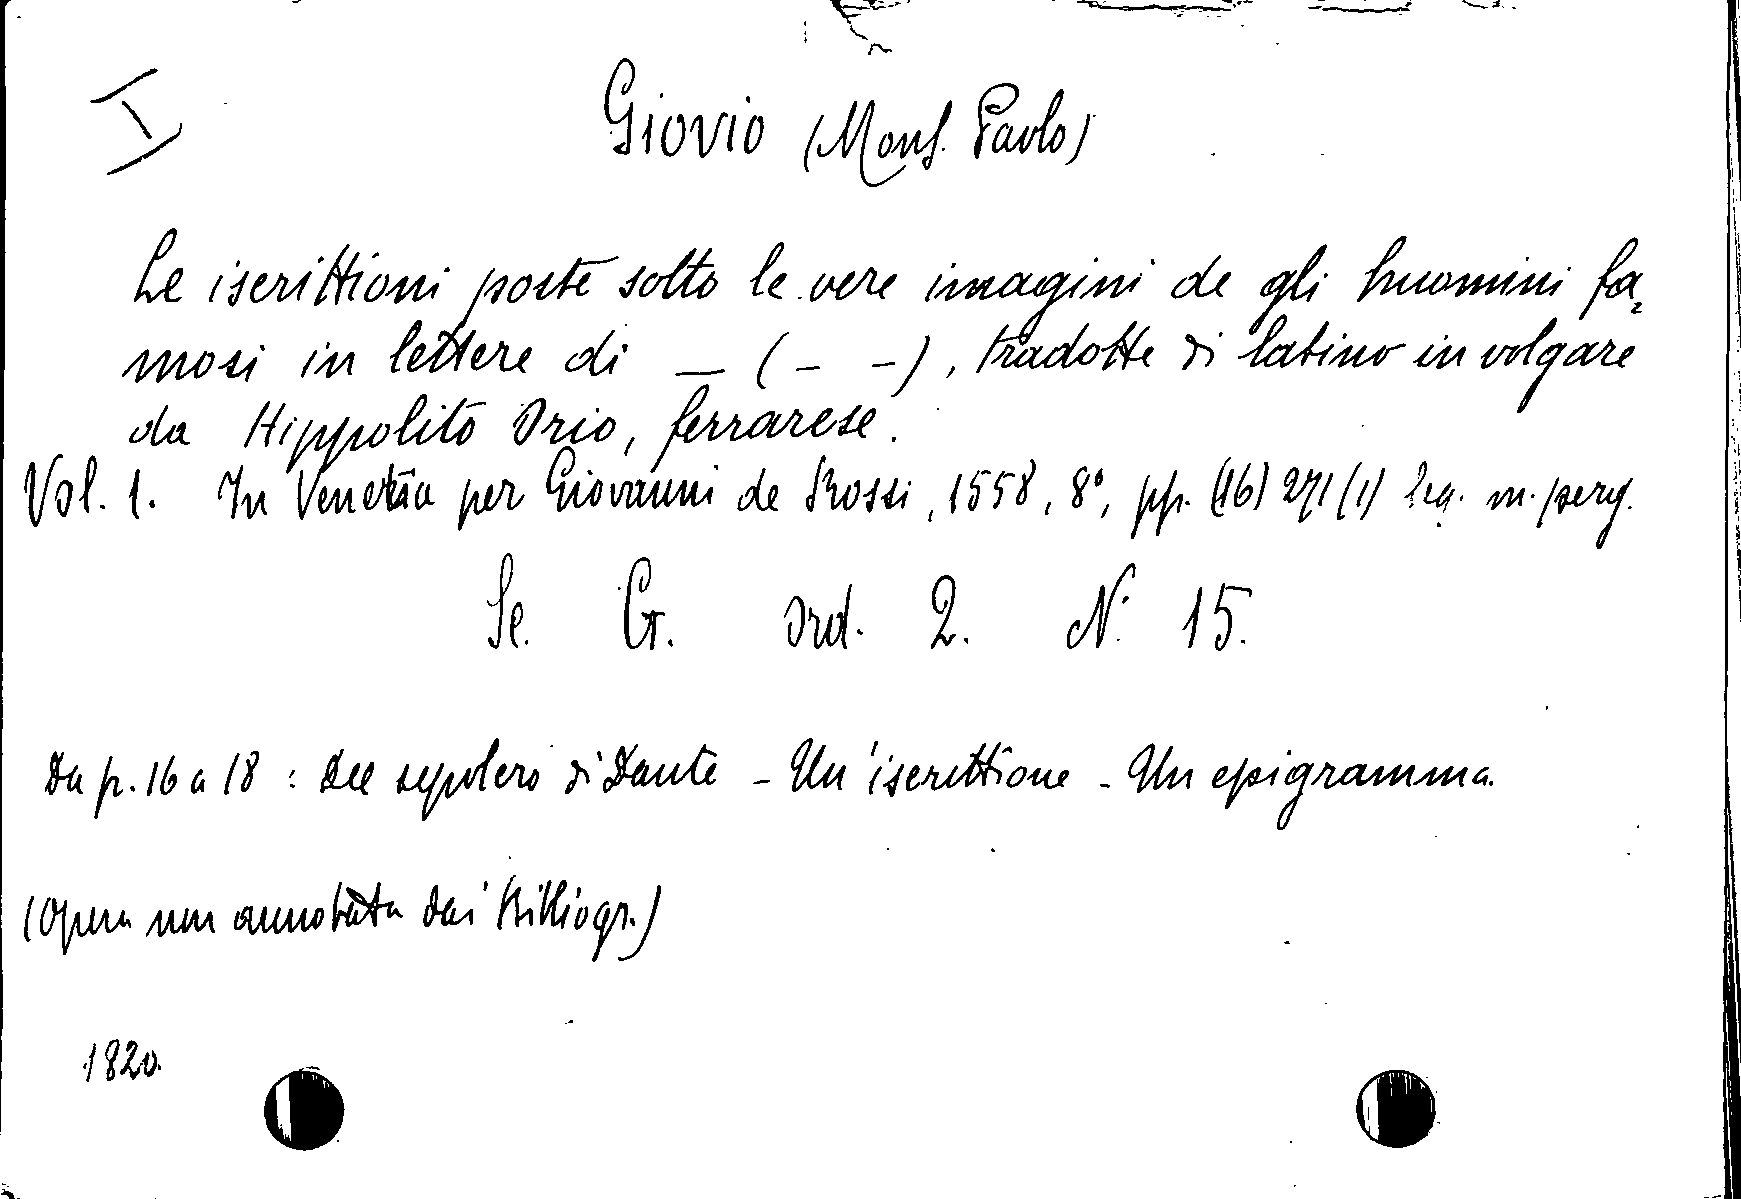 I
Giovio (Mons. Paolo)
Le iscrittioni poste sotto le vere imagini de gli huomini fa-
mosi in lettere di — (- -), tradotte di latino in volgare
da Hippolito Orio, ferrarese.
Vol. 1. In Venetia per Giovanni de Rossi, 1558, 8°, pp. (16) 271 (1) leg. m. perg.
Se. G. Ord. 2. N. 15.
Da p. 16 a 18 : Del sepolcro di Dante - Un'iscrittione - Un epigramma.
(Opera non annotata dai Bibliogr.)
1820.